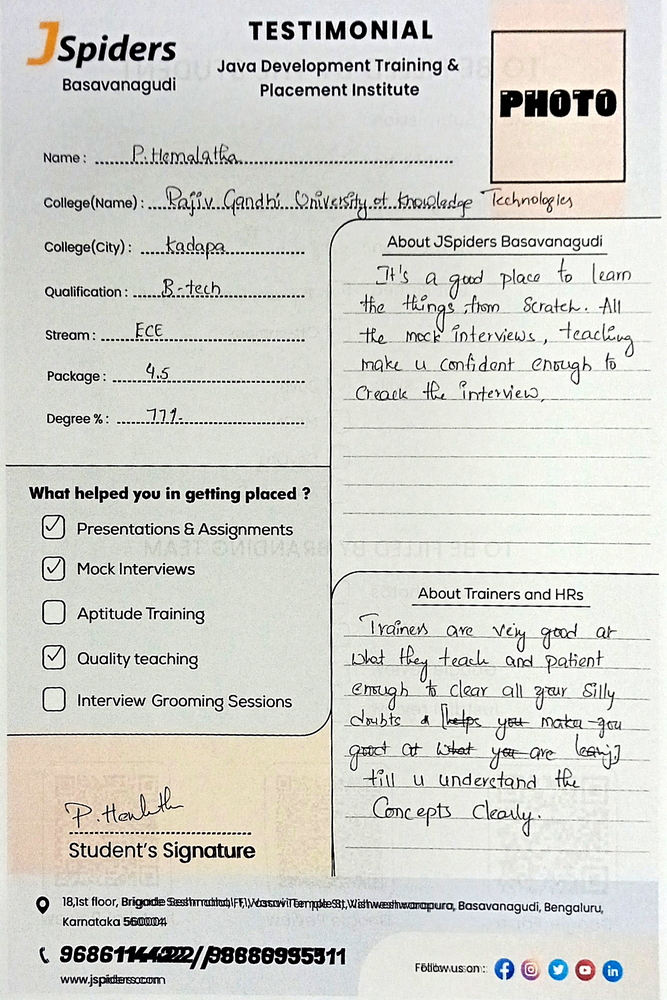 JSpiders
Basavanagudi
TESTIMONIAL
Java Development Training &
Placement Institute
PHOTO
Name : P. Hemalatha
College(Name) : Rajiv Gandhi University of Knowledge Technologies
College(City) : Kadapa
Qualification : B-tech
Stream : ECE
Package : 4.5
Degree % : 77%
What helped you in getting placed ?
Presentations & Assignments
Mock Interviews
Aptitude Training
Quality teaching
Interview Grooming Sessions
Student's Signature
About JSpiders Basavanagudi
It's a good place to learn
the things from Scratch. All
the mock interviews, teaching
make u confident enough to
Creack the interview.
About Trainers and HRs
Trainers are very good at
what they teach and patient
enough to clear all your silly
doubts & [helps you make you
good at what you are
till u understand the
Concepts Clearly.
18,1st floor, Brigade Vasavi Temple St, Vishweshwarapura, Basavanagudi, Bengaluru,
Karnataka 560004
www.jspiders.com
Follow us on :